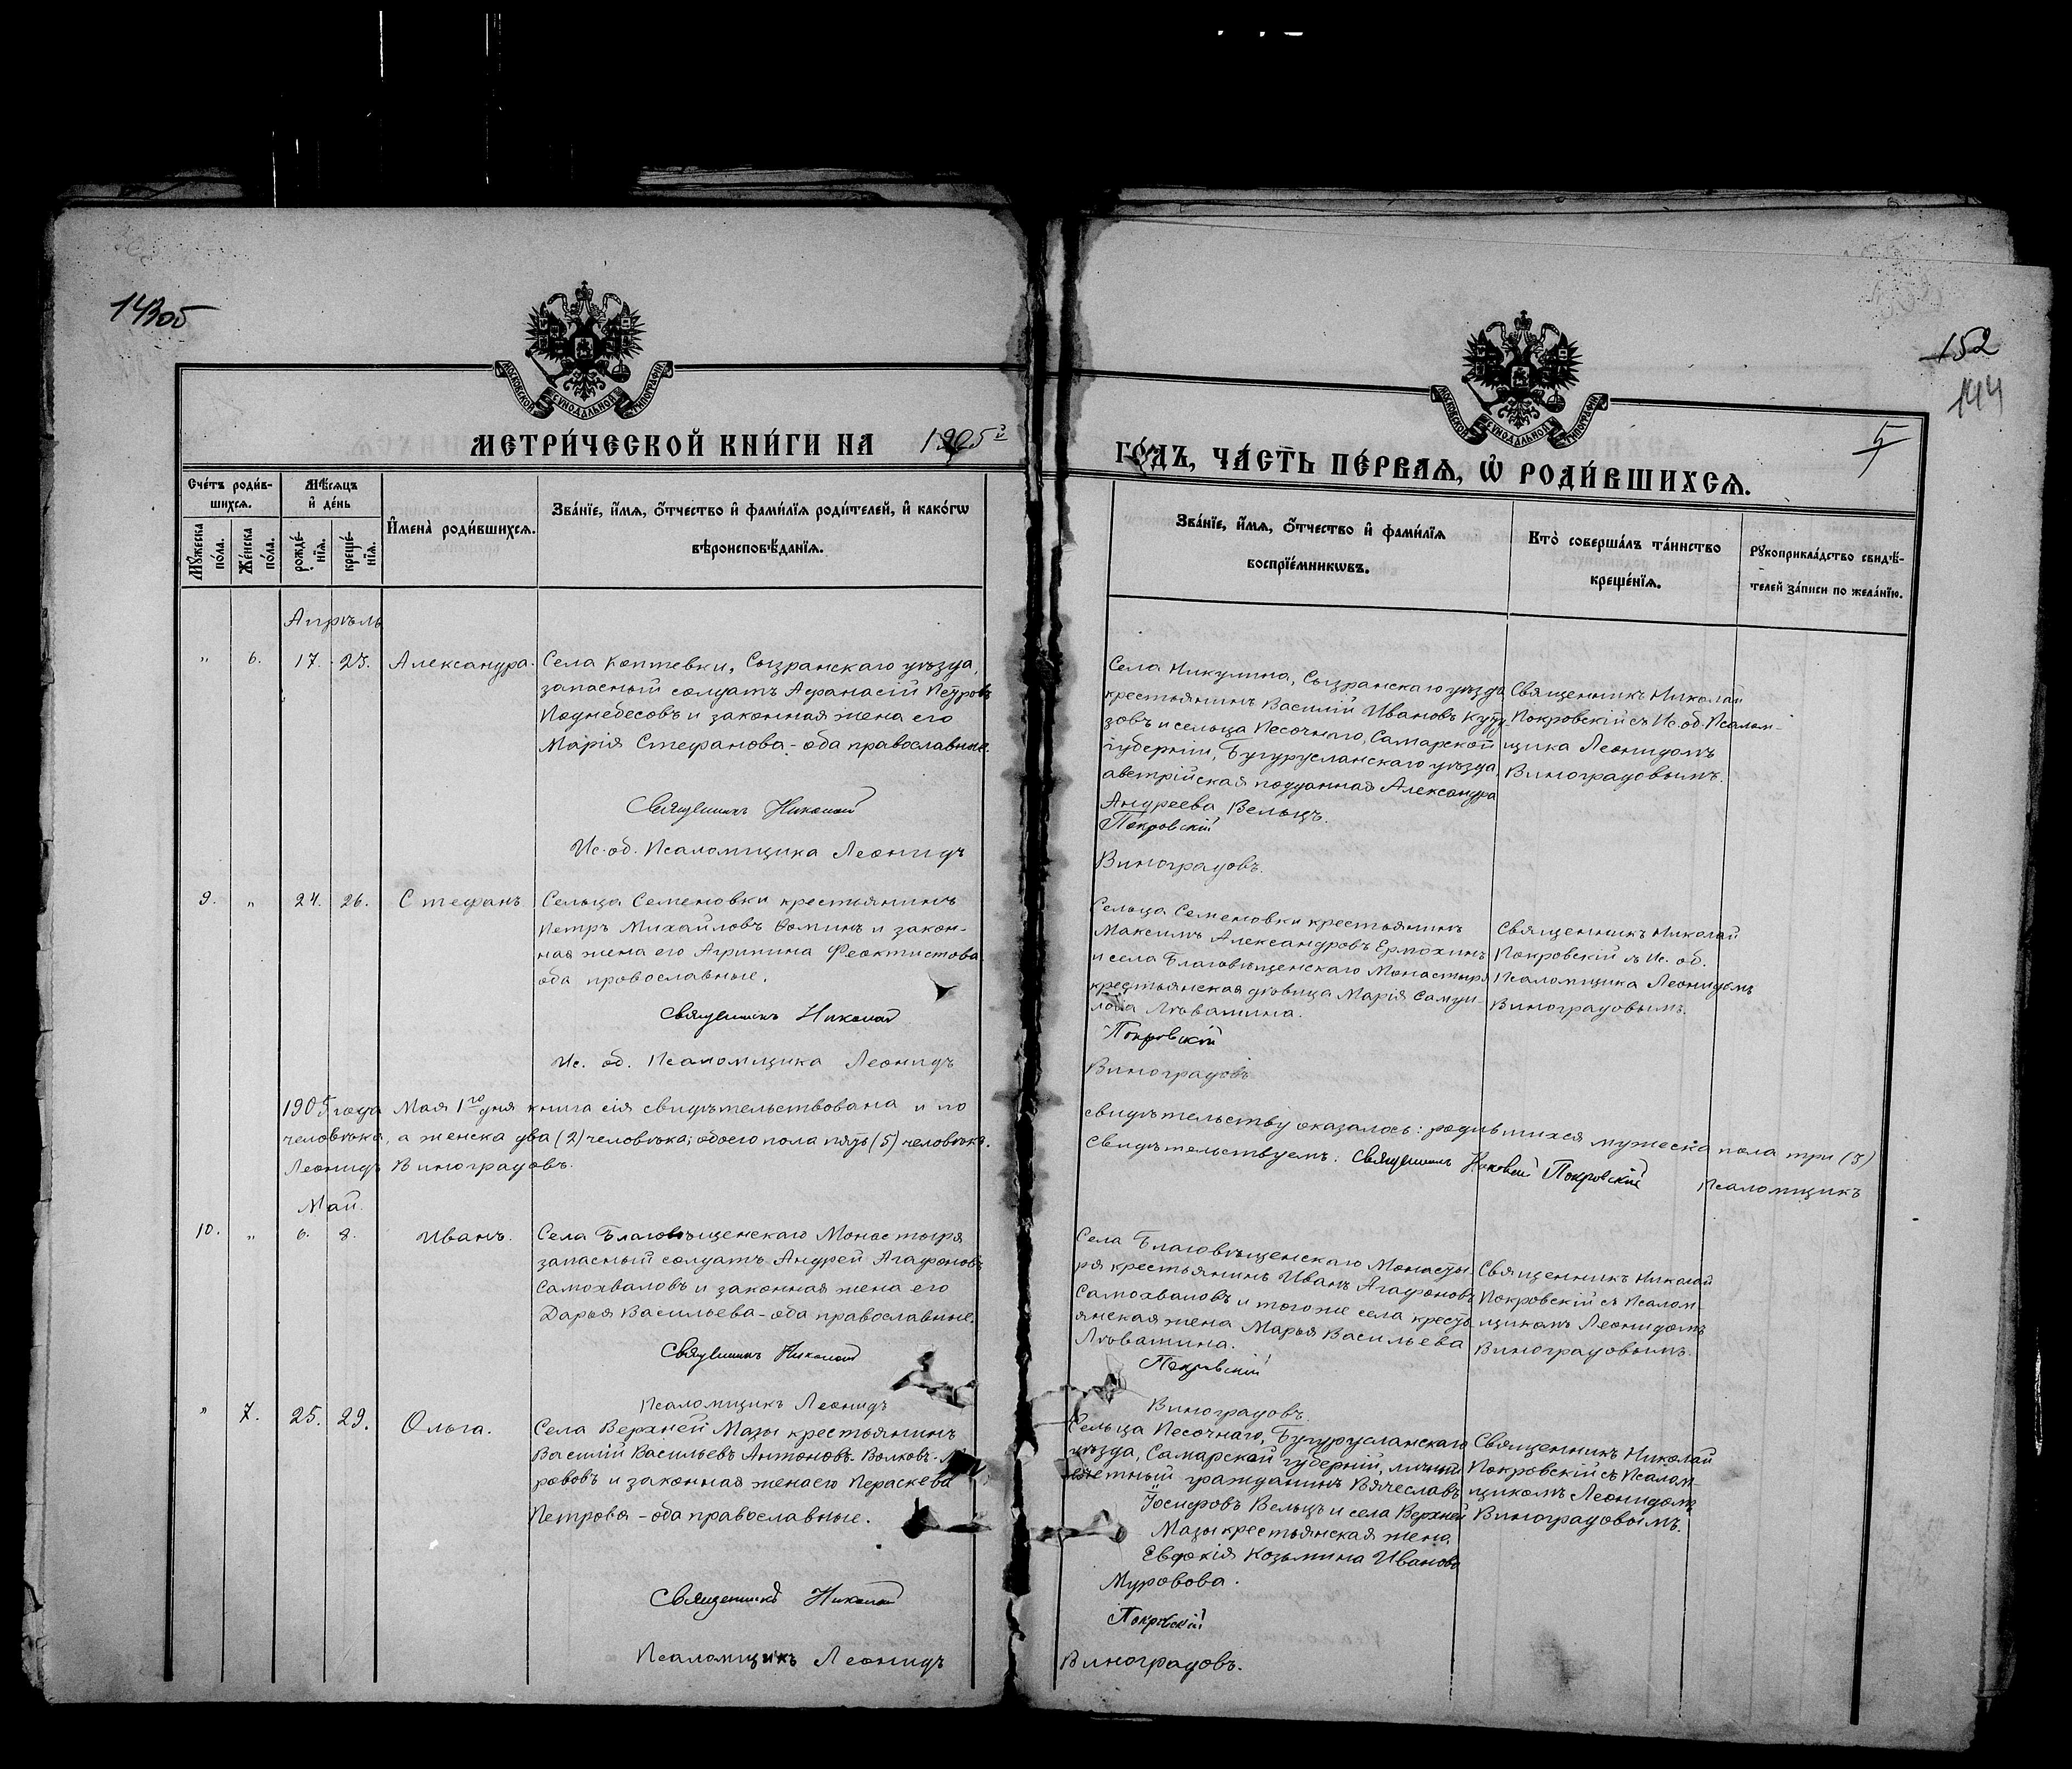 14305
152
144
5
МОСКОВСКОЙ СѴНОДАЛЬНОЙ ТИПОГРАФІИ
МОСКОВСКОЙ СѴНОДАЛЬНОЙ ТИПОГРАФІИ
МЕТРИ́ЧЕСКОЙ КНИ́ГИ НА 1905й
ГО́ДЪ, ЧА́СТЬ ПЕ́РВАѦ, Ѡ҆ РОДИ́ВШИХСѦ.
Сче́тъ роди́в-
шихсѧ.
Мꙋ́жеска
по́ла.
Же́нска
по́ла.
Мѣ́сѧцъ
и҆ де́нь
рожде́-
нїѧ.
креще́-
нїѧ.
И҆мена̀ роди́вшихсѧ.
Зва́нїе, и҆́мѧ, ѻ҆́тчество и҆ фами́лїѧ роди́телей, и҆ како́гѡ
вѣроисповѣ́данїѧ.
Зва́нїе, и҆́мѧ, ѻ҆́тчество и҆ фами́лїѧ
воспрїе́мникѡвъ.
Кто̀ соверша́лъ та́инство
креще́нїѧ.
Рꙋкоприкла́дство свидѣ́-
телей за́писи по жела́нїю.
Апрѣль
" 6. 17. 23. Александра.
Села Коптевки, Сызранскаго уѣзда,
запасный солдатъ Афанасій Петровъ
Поднебесовъ и законная жена его
Марія Стефанова - оба православные.
Священникъ Николай
Ис. об. Псаломщика Леонидъ
Села Никулина, Сызранскаго уѣзда
крестьянинъ Василій Ивановъ Куту-
зовъ и сельца Песочнаго, Самарской
губерніи, Бугурусланскаго уѣзда,
австрійская подданная Александра
Андреева Вельцъ.
Покровскій
Виноградовъ.
Священникъ Николай
Покровскій съ Ис. об. Псалом-
щика Леонидомъ
Виноградовымъ.
9. " 24. 26. Стефанъ
Сельца Семеновки крестьянинъ
Петръ Михайловъ Ѳоминъ и закон-
ная жена его Агрипина Феоктистова
оба провославные.
Священникъ Николай
Ис. об. Псаломщика Леонидъ
Сельца Семеновки крестьянинъ
Максимъ Александровъ Ермохинъ
и села Благовѣщенскаго Монастыря
крестьянская дѣвица Марія Самуи-
лова Лѣвашина.
Покровскій
Виноградовъ
Священникъ Николай
Покровскій съ Ис. об.
Псаломщика Леонидомъ
Виноградовымъ.
1905 года Мая 1го дня книга сія свидѣтельствована и по свидѣтельству оказалось: родившихся мужеска пола три (3)
человѣка, а женска два (2) человѣка; обоего пола пять (5) человѣкъ. Свидѣтельствуемъ: Священникъ Николай Покровскій Псаломщикъ
Леонидъ Виноградовъ.
Май.
10. " 6. 8. Иванъ.
Села Благовѣщенскаго Монастыря
запасный солдатъ Андрей Агафоновъ
Самохваловъ и законная жена его
Дарья Васильева - оба православные.
Священникъ Николай
Псаломщикъ Леонидъ
Села Благовѣщенскаго Монасты-
ря крестьянинъ Иванъ Агафоновъ
Самохваловъ и того же села кресть-
янская жена Марья Васильева
Лѣвашина.
Покровскій
Виноградовъ.
Священникъ Николай
Покровскій съ Псалом-
щикомъ Леонидомъ
Виноградовымъ.
" 7. 25. 29. Ольга.
Села Верхней Мазы крестьянинъ
Василій Васильевъ Антоновъ-Волковъ-
ровъ и законная жена его Пераскева
Петрова - оба православные.
Священникъ Николай
Псаломщикъ Леонидъ
Сельца Песочнаго, Бугурусланскаго
уѣзда, Самарской губерніи, личный
почетный гражданинъ Вячеславъ
Іосифовъ Вельцъ и села Верхней
Мазы крестьянская жена
Евфокія Козьмина Иванова
Муровова.
Покровскій
Виноградовъ.
Священникъ Николай
Покровскій съ Псалом-
щикомъ Леонидомъ
Виноградовымъ.